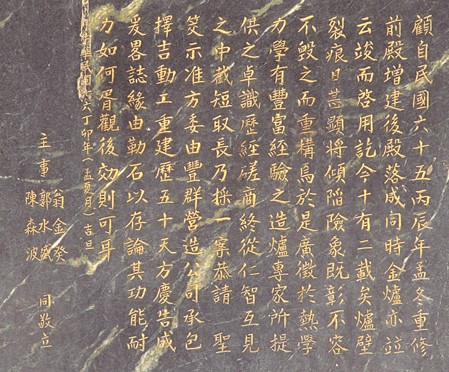 顧自民國六十五丙辰年孟冬重修
前殿增建後殿落成同時金爐亦竝
云竣而啓用訖今十有二載矣爐壁
裂痕日甞顯將傾陷險象既彰不容
不毀之而重構焉於是廣徵於熱學
力學有豐富經驗之造爐專家所提
供之卓識歷經磋商終從仁智互見
之中截短取長乃採一案恭請 聖
筊示准方委由豐群營造公司承包
擇吉動工重建歷五十天方慶告成
爰畧誌緣由勒石以存論其功能耐
力如何胥觀後効則可耳
六丁卯年(孟夏月)吉旦
主重 翁金癸 郭水盛 陳森波 同敬立